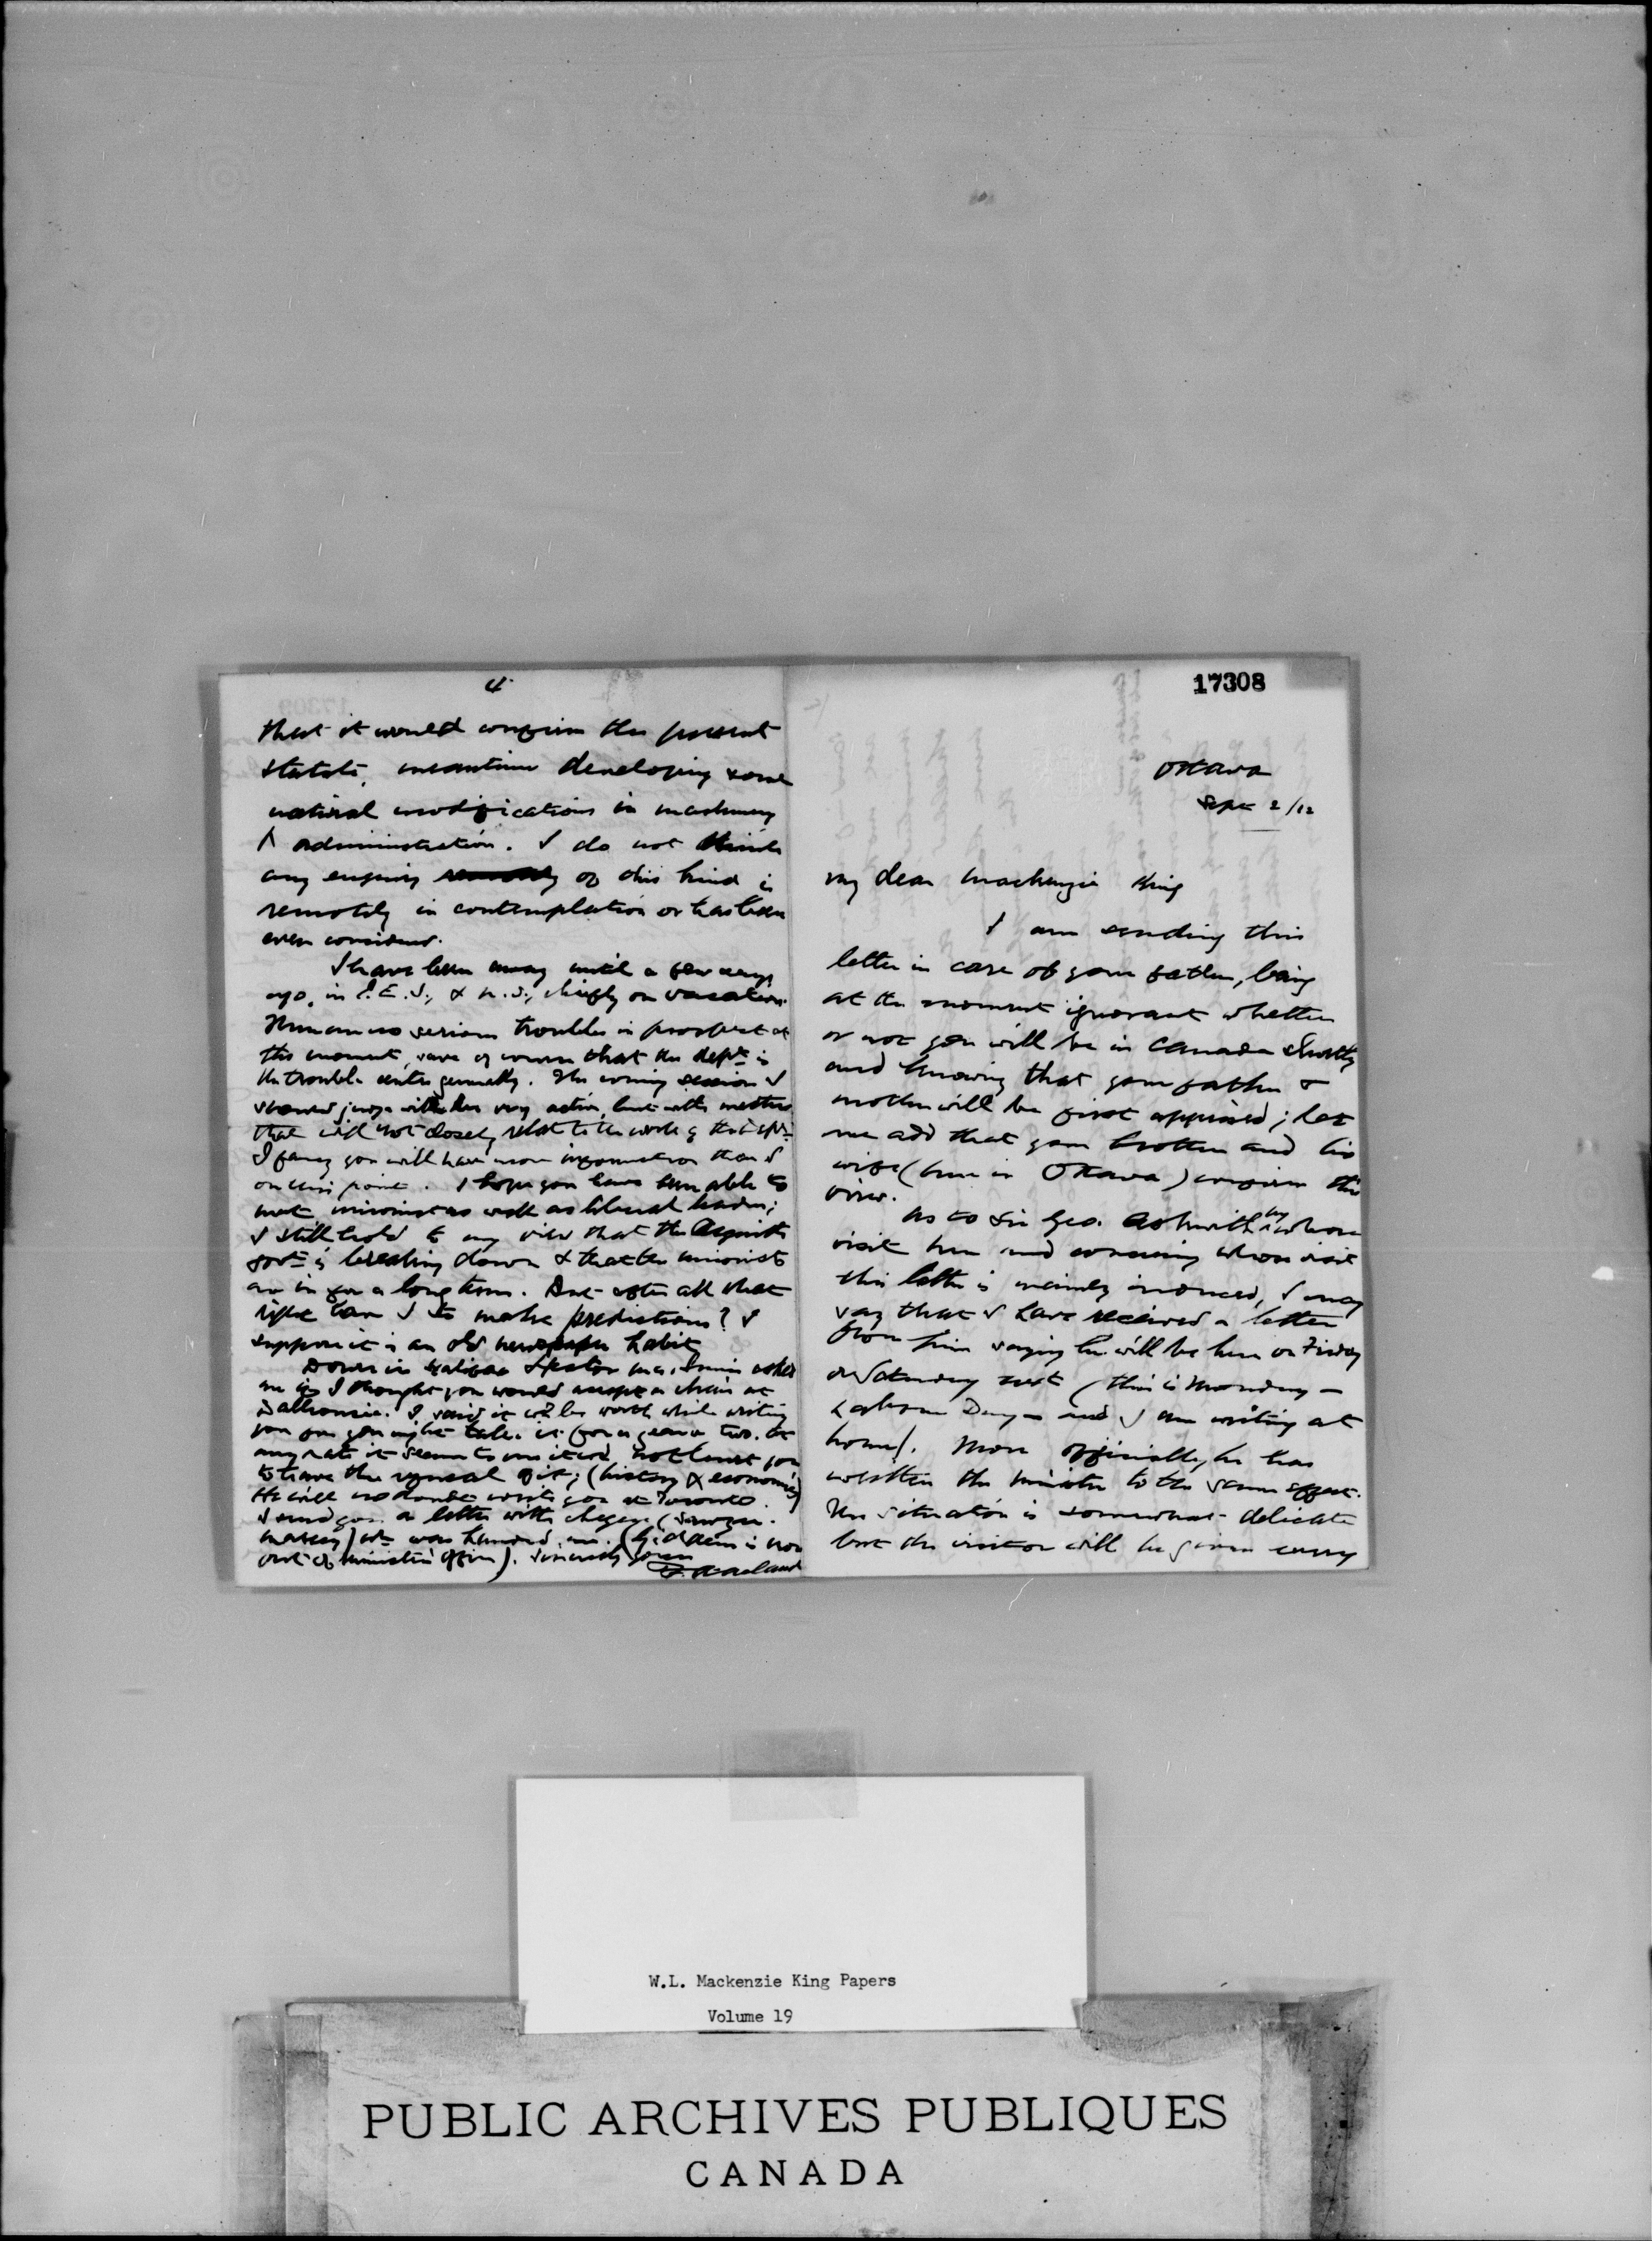 4
that it would confirm the present
statute, meantime developing some
natural modifications in machinery
& administration. I do not think
any enquiry of this kind is
remotely in contemplation or has been
even considered.
I have been away until a few days
ago, in P.E.I., & N.S., chiefly on vacation.
There are no serious troubles in prospect at
this moment, save of course that the dept is
the trouble centre generally. The coming session I
should judge will be very active, but with matters
that will not closely relate to the work of the dept.
I fancy you will have more information than I
on this point. I hope you have been able to
meet unionist as well as liberal leaders;
I still hold to my view that the Asquith
govt is breaking down & that the unionists
are in for a long term. But after all what
right have I to make predictions? I
suppose it is an old newspaper habit
Down in Halifax Hector McInnis asked
me if I thought you would accept a chair at
Dalhousie. I said it wd be worth while writing
you for you might take it for a year or two. At
any rate it seems to me it wd not hurt you
to have the refusal of it; (history & economics)
He will no doubt write you at Toronto.
I send you a letter with cheque
wh was handed me. is now
out of minister's office). Sincerely yours
F. Acland
17308
Ottawa
Sept 2/12
My dear Mackenzie King
I am sending this
letter in care of your father, being
at the moment ignorant whether
or not you will be in Canada shortly
and knowing that your father &
mother will be first apprised; let
me add that your brother and his
wife (here in Ottawa) confirm this
view.
As to Sir Geo. Askwith by whose
visit here and concerning whose visit
this letter is mainly induced, I may
say that I have received a letter
from him saying he will be here on Friday
or Saturday next (this is Monday -
Labour Day - and I am writing at
home). More officially he has
written the minister to the same effect.
The situation is somewhat delicate
but the visitor will be given every
W.L. Mackenzie King Papers
Volume 19
PUBLIC ARCHIVES PUBLIQUES
CANADA